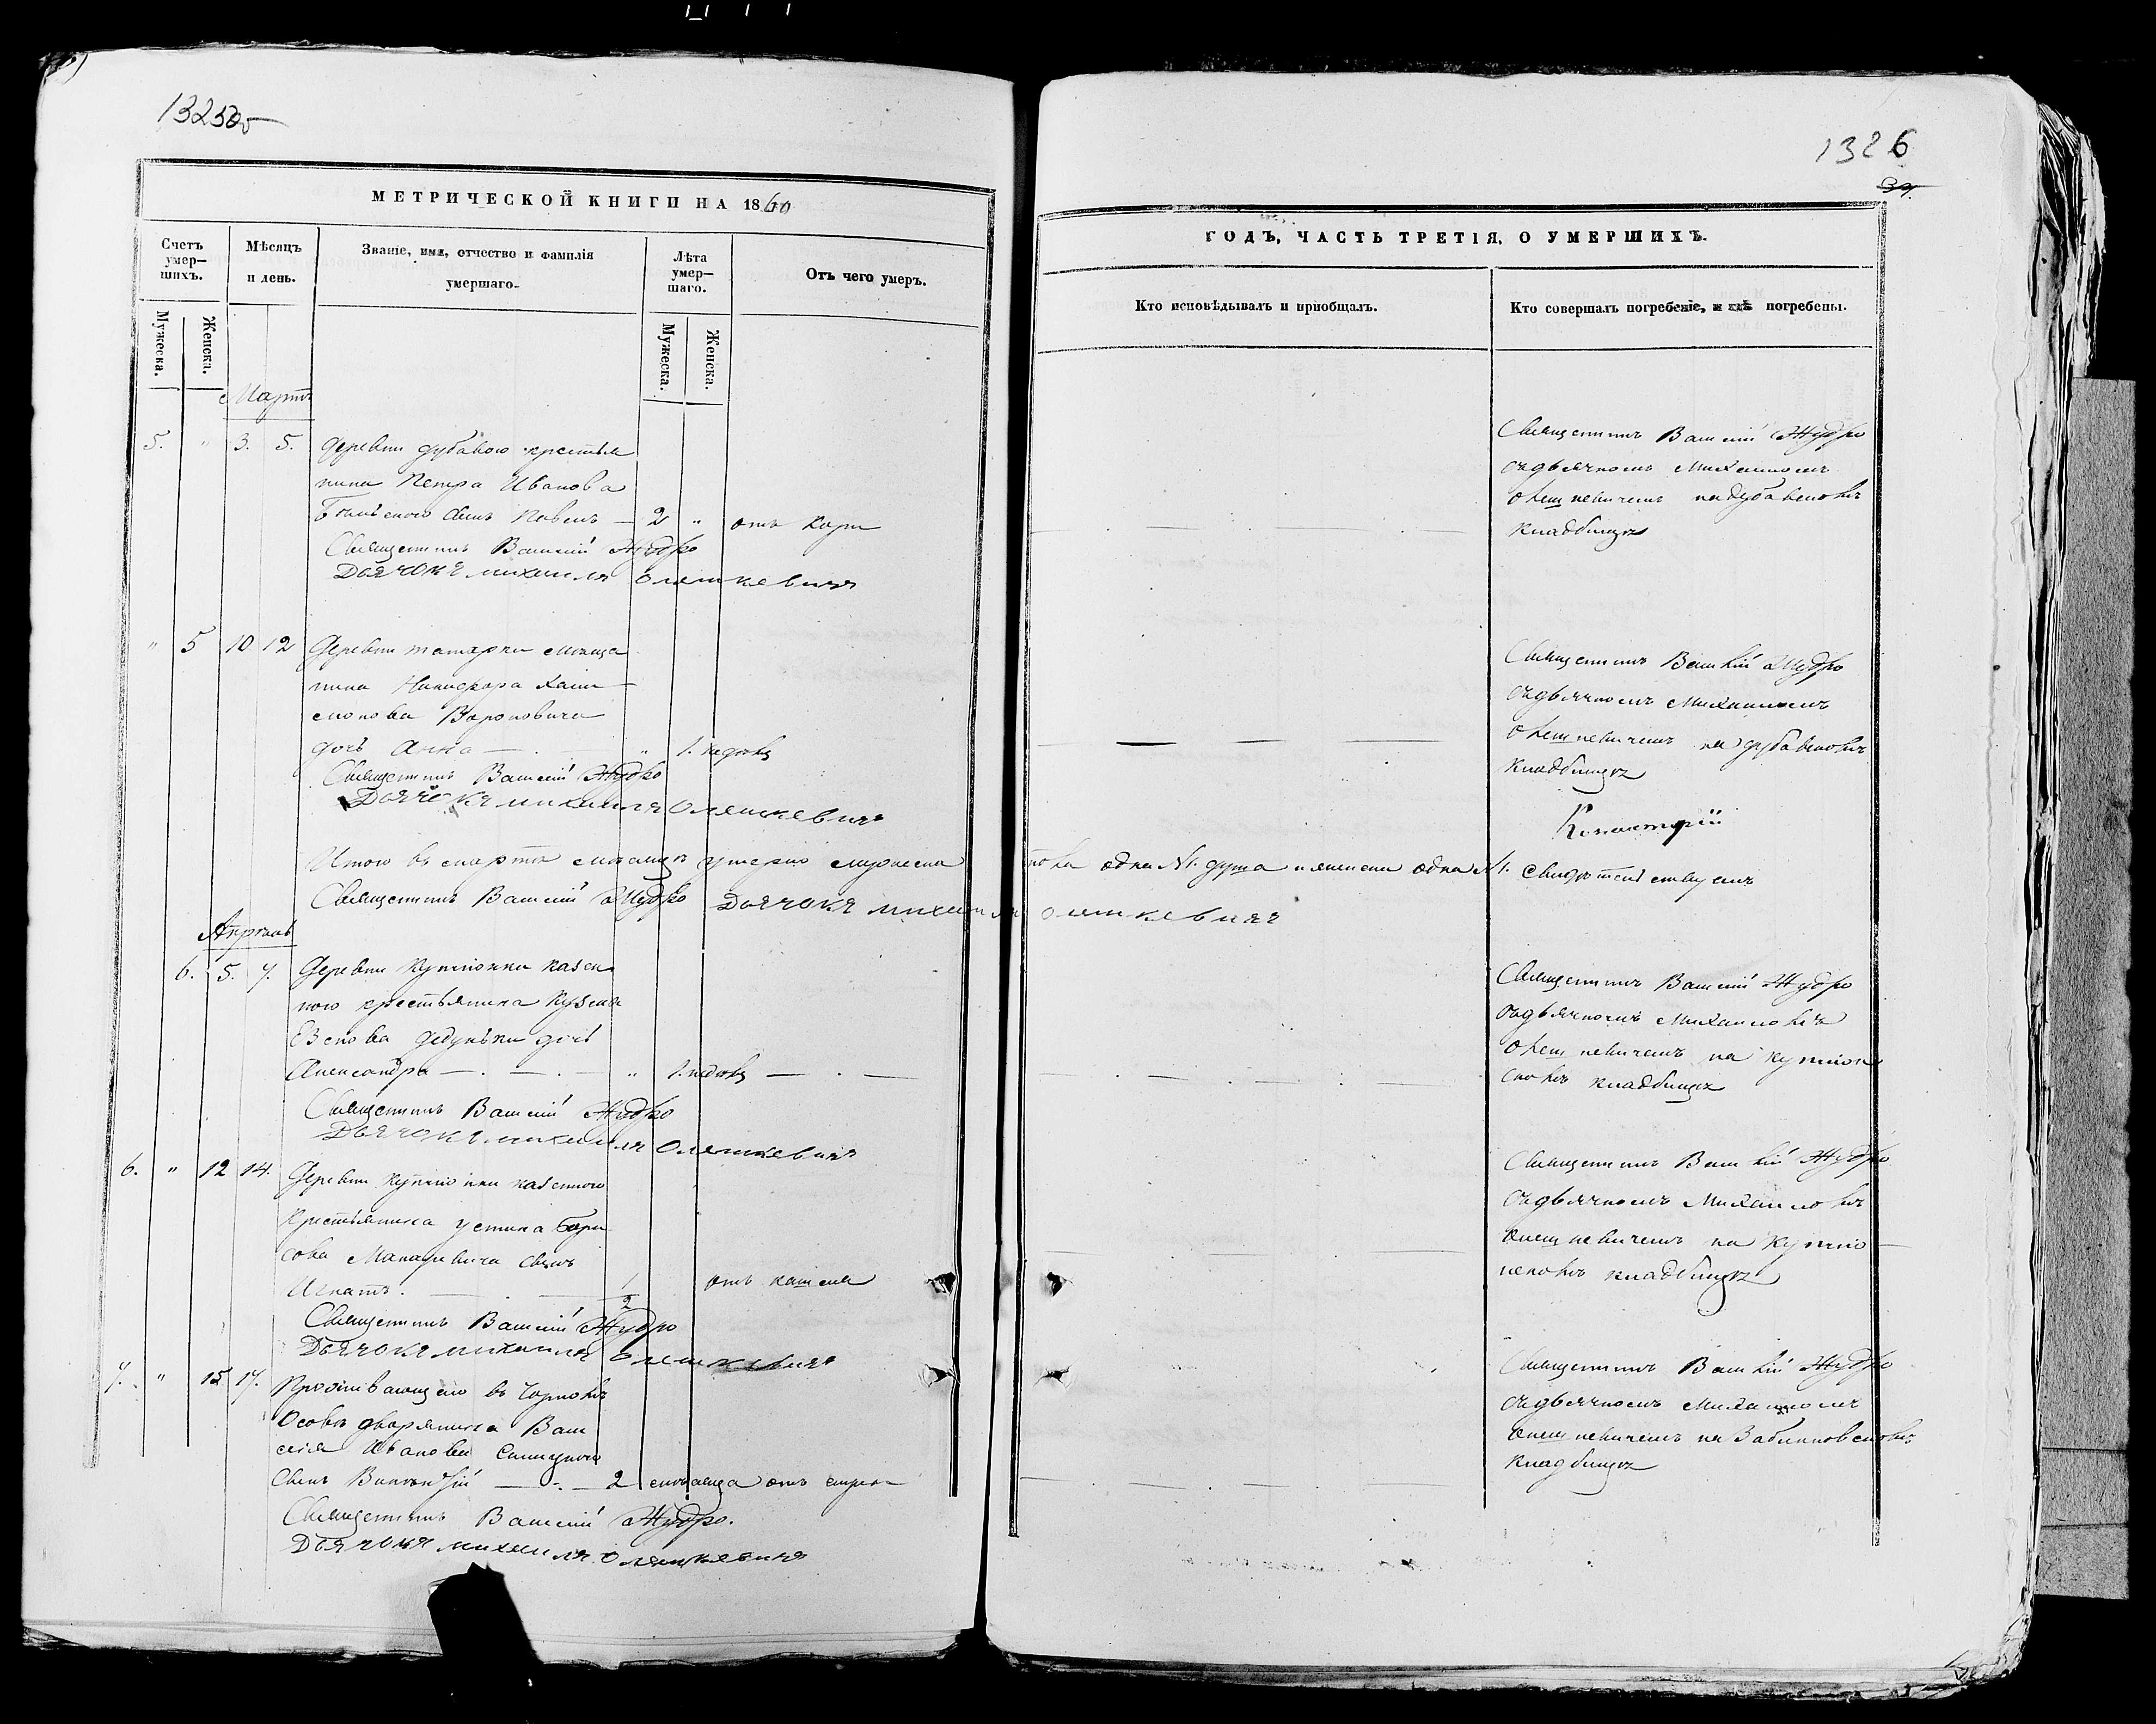 1325
МЕТРИЧЕСКОЙ КНИГИ НА 1860
Счетъ умер—шихъ.
Мужеска.
Женска.
Мѣсяцъ и день.
Званіе, имя, отчество и фамилія умершаго.
Лѣта умер—шаго.
Мужеска.
Женска.
Отъ чего умеръ.
Мартъ
5. " 3. 5. деревни дубавою крестья
нина Петра Иванова
сынъ Павелъ — 2 " отъ кори
Священникъ Василій Жудро
Дьячокъ Михаилъ Олешкевичъ
" 5 10 12 Деревни татарки мѣща
нина Никифора
Вороновича
дочь Анна — " 1. недѣля
Священникъ Василій Жудро
Дьячокъ Михаилъ Олешкевичъ
Итого въ мартѣ мѣсяцѣ умерло мужеска
Священникъ Василій Жудро Дьячокъ Михаилъ Олешкевичъ
Апрѣль
6. 5. 7. Деревни казен
ного крестьянина Кузьмы
дочь
Александра — " 1. недѣля —
Священникъ Василій Жудро
Дьячокъ Михаилъ Олешкевичъ
6. " 12 14. Деревни казенного
крестьянина Устина Бори
сова Макаревича сынъ
Игнатъ. — 1/2 отъ кашеля
Священникъ Василій Жудро
Дьячокъ Михаилъ Олешкевичъ
7. " 15 17. Проживающего въ
дворянина Васи
лія Иванова
сынъ Викентій — 2 мѣсяца отъ
Священникъ Василій Жудро.
Дьячокъ Михаилъ Олешкевичъ
1326
ГОДЪ, ЧАСТЬ ТРЕТІЯ, О УМЕРШИХЪ.
Кто исповѣдывалъ и пріобщалъ.
Кто совершалъ погребеніе, и гдѣ погребены.
Священникъ Василій Жудро
съ дьячкомъ Михаиломъ
Олешкевичемъ на дубавскомъ
кладбищѣ
Священникъ Василій Жудро
съ дьячкомъ Михаиломъ
Олешкевичемъ на дубавскомъ
кладбищѣ
одна №1. душа и женска одна №1.
свидѣтельствуемъ
Священникъ Василій Жудро
съ дьячкомъ Михаиломъ
Олешкевичемъ на
скомъ кладбищѣ
Священникъ Василій Жудро
съ дьячкомъ Михаиломъ
Олешкевичемъ на
кладбищѣ
Священникъ Василій Жудро
съ дьячкомъ Михаиломъ
Олешкевичемъ на
кладбищѣ